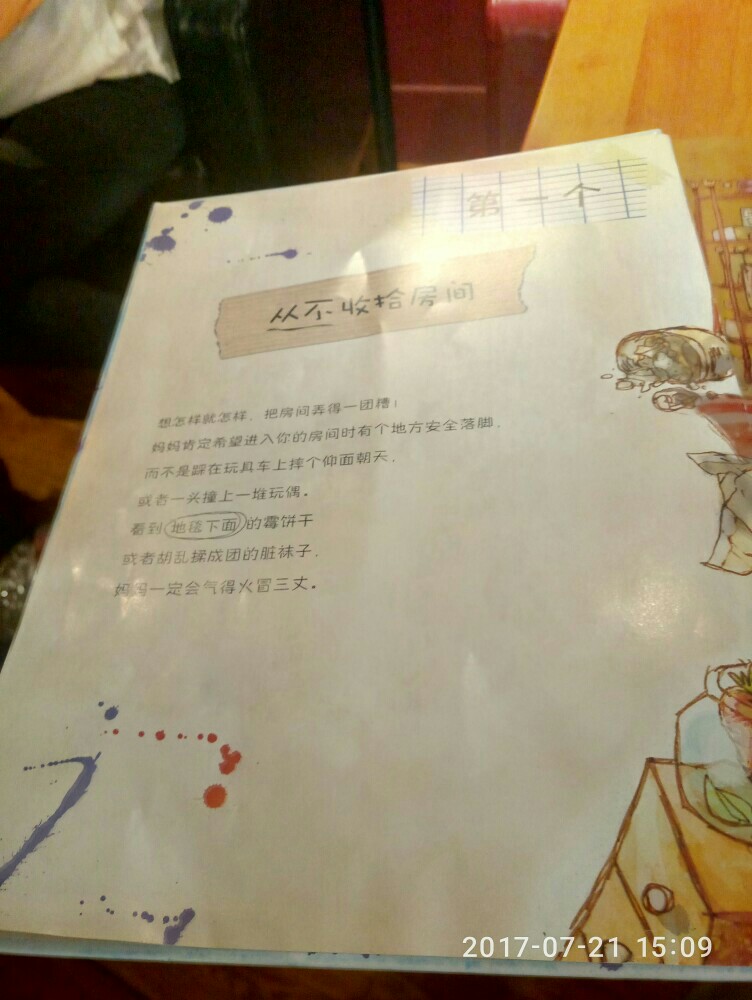 第一个
从不收拾房间
想怎样就怎样，把房间弄得一团糟！
妈妈肯定希望进入你的房间时有个地方安全落脚，
而不是踩在玩具车上摔个仰面朝天，
或者一头撞上一堆玩偶。
看到地毯下面的霉饼干
或者胡乱揉成团的脏袜子，
妈妈一定会气得火冒三丈。
2017-07-21 15:09